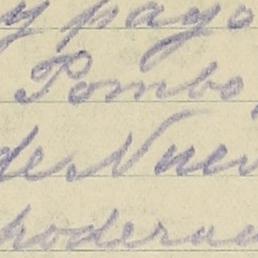 y pago
Pombo
de Nuev
poderad